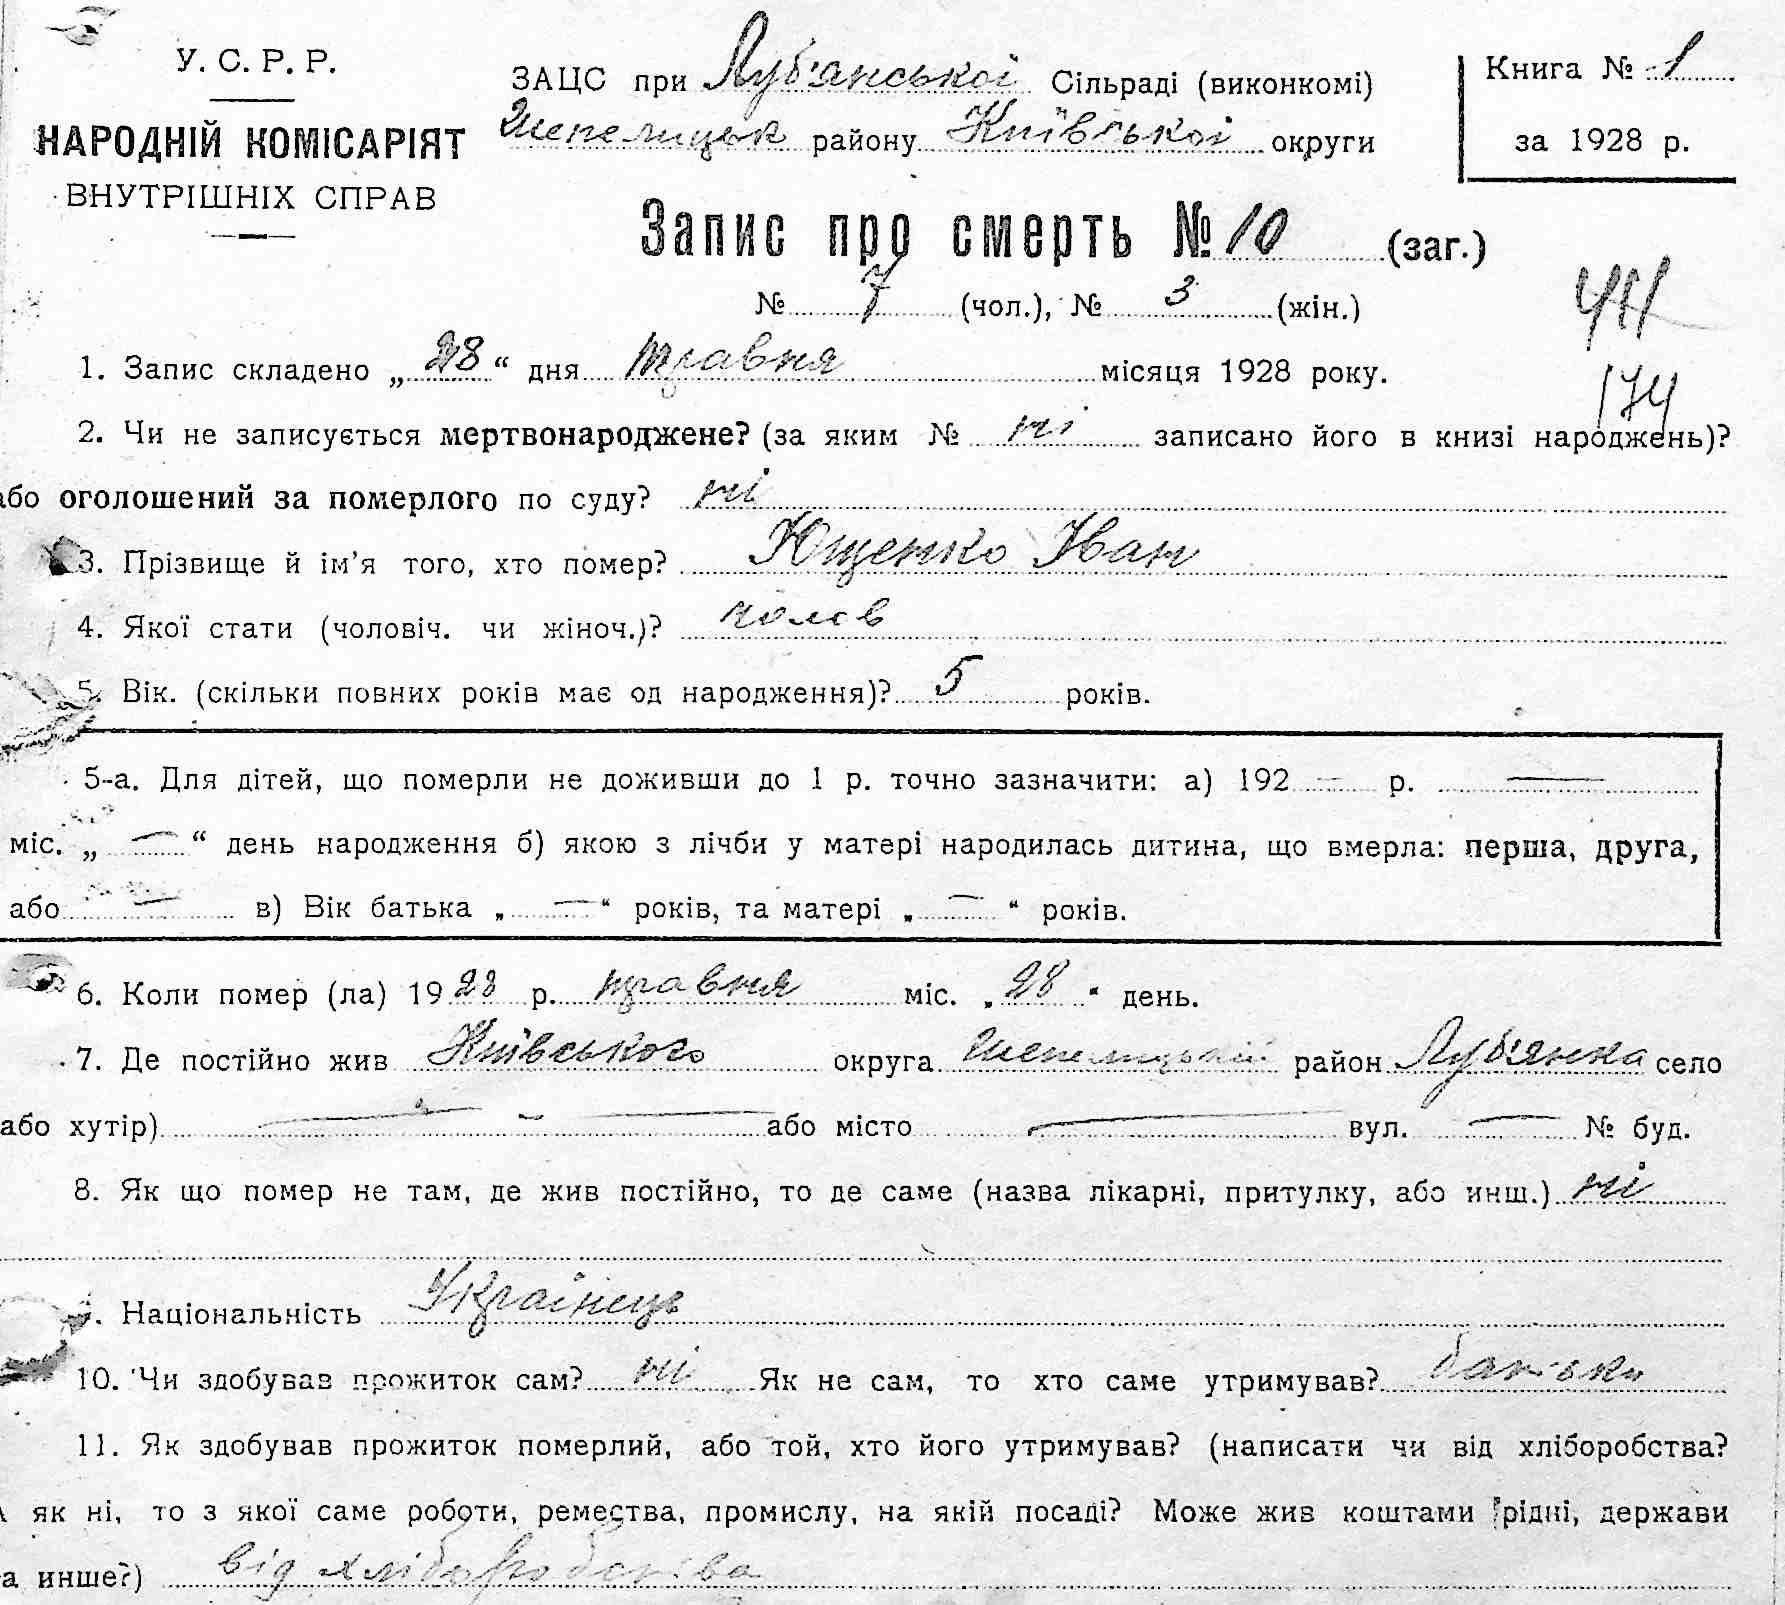 У. С. Р. Р.
НАРОДНІЙ КОМІСАРІЯТ
ВНУТРІШНІХ СПРАВ
ЗАЦС при Луб'янської Сільраді (виконкомі)
Шепелицьк району Київської округи
Книга № 1
за 1928 р.
Запис про смерть № 10 (заг.)
№ 7 (чол.), № 3 (жін.)
411
174
1. Запис складено „28“ дня травня місяця 1928 року.
2. Чи не записується мертвонароджене? (за яким № ні записано його в книзі народжень)?
або оголошений за померлого по суду? ні
3. Прізвище й ім'я того, хто помер? Ющенко Іван
4. Якої стати (чоловіч. чи жіноч.)? чолов
5. Вік. (скільки повних років має од народження)? 5 років.
5-а. Для дітей, що померли не доживши до 1 р. точно зазначити: а) 192 — р. —
міс. „ — “ день народження б) якою з лічби у матері народилась дитина, що вмерла: перша, друга,
або — в) Вік батька „ — “ років, та матері „ — “ років.
6. Коли помер (ла) 1928 р. травня міс. „28“ день.
7. Де постійно жив Київського округа Шепелицький район Луб'янка село
або хутір) — або місто — вул. — № буд.
8. Як що помер не там, де жив постійно, то де саме (назва лікарні, притулку, або инш.) ні
9. Національність Українець
10. Чи здобував прожиток сам? ні Як не сам, то хто саме утримував? батьки
11. Як здобував прожиток померлий, або той, хто його утримував? (написати чи від хліборобства?
А як ні, то з якої саме роботи, ремества, промислу, на якій посаді? Може жив коштами рідні, держави
та инше?) від хліборобства